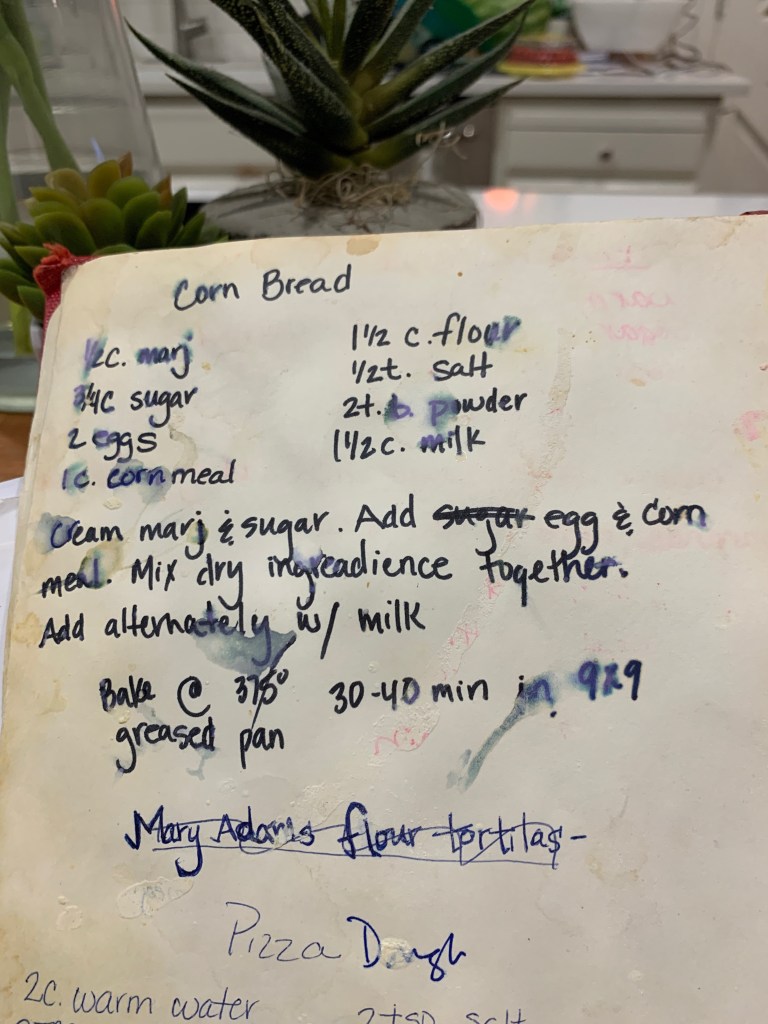 Corn Bread
1/2c. marj
3/4c sugar
2 eggs
1c. corn meal
1 1/2 c. flour
1/2t. salt
2t. b. powder
1 1/2 c. milk
Cream marj & sugar. Add sugar egg & corn
meal. Mix dry ingreadience together.
Add alternately w/ milk
Bake @ 375° 30-40 min in 9x9
greased pan
Mary Adams flour tortilas-
Pizza Dough
2c. warm water
2tsp salt